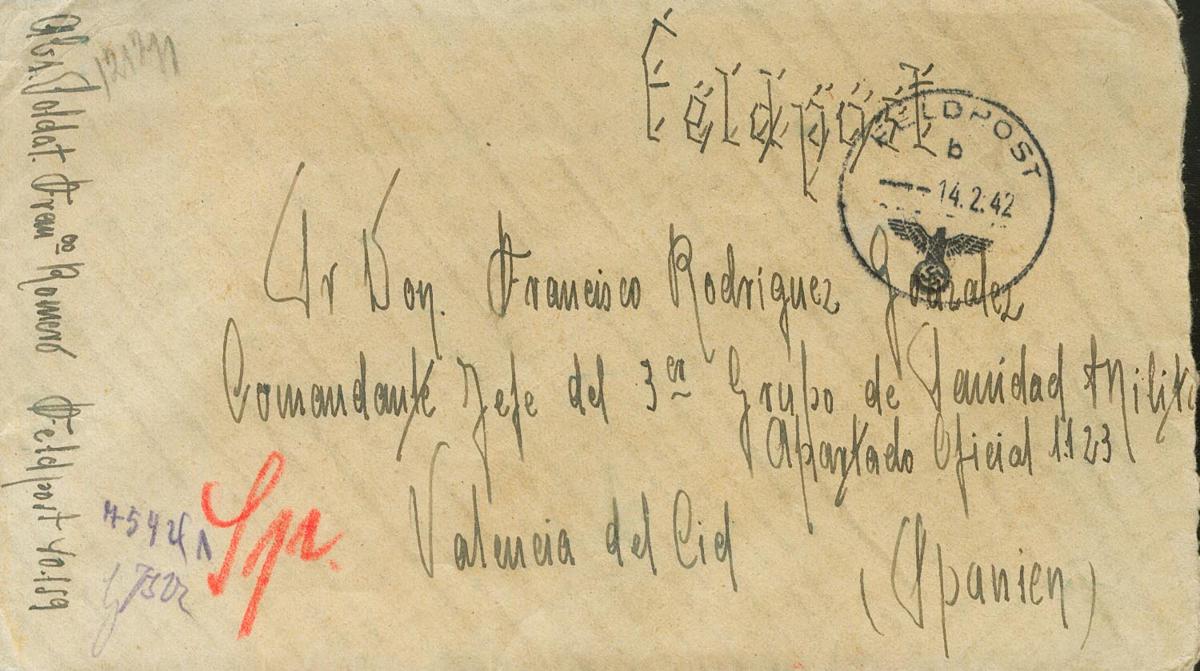 Feldpost
FELDPOST
b
14.2.42
Sr Don. Francisco Rodriguez Gonzalez
Comandante Jefe del 3er Grupo de Sanidad Milita
Apartado Oficial 1123
Valencia del Cid
(Spanien)
Abs. Soldat. Franco Romero Feldpost 40.159
Spa.